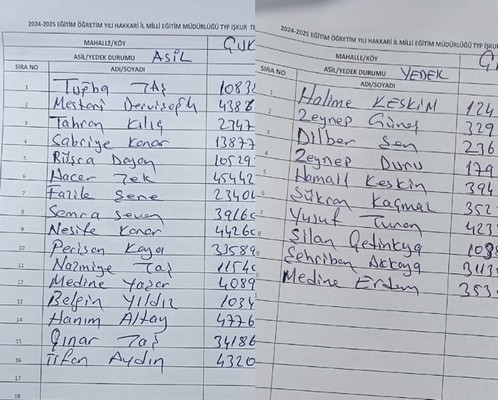 2024-2025 EĞİTİM ÖĞRETİM YILI HAKKARİ İL MİLLİ EĞİTİM MÜDÜRLÜĞÜ TYP İŞKUR TE
MAHALLE/KÖY ÇUK
ASİL/YEDEK DURUMU ASİL
SIRA NO ADI/SOYADI
1 Tuğba TAŞ 10832
2 Mesteni Dervişoğlu 4388
3 Tahran Kılıç 2347
4 Sabriye Kanar 13877
5 Büşra Doğan 10529
6 Hacer Tek 45442
7 Fazile Şene 23404
8 Semra Seven 39166
9 Nesife Kanar 44260
10 Perişan Kaya 33589
11 Nazmiye Taş 11540
12 Medine Yaşar 4089
13 Belgin YILDIZ 1034
14 Hanım Altay 4776
15 Çınar Taş 34186
16 İrfan Aydın 4320
17
18
2024-2025 EĞİTİM ÖĞRETİM YILI HAKKARİ İL MİLLİ EĞİTİM MÜDÜRLÜĞÜ TYP İŞKUR
MAHALLE/KÖY
ASİL/YEDEK DURUMU YEDEK
SIRA NO ADI/SOYADI
1 Halime KESKİN 124
2 Zeynep Güneş 329
3 Dilber Şen 236
4 Zeynep Duru 179
5 Hamail Keskin 394
6 Şükran Kaçmaz 352
7 Yusuf Turan 423
Silan Çetinkaya 108
Şehriban Akkaya 3113
Medine Erdem 353